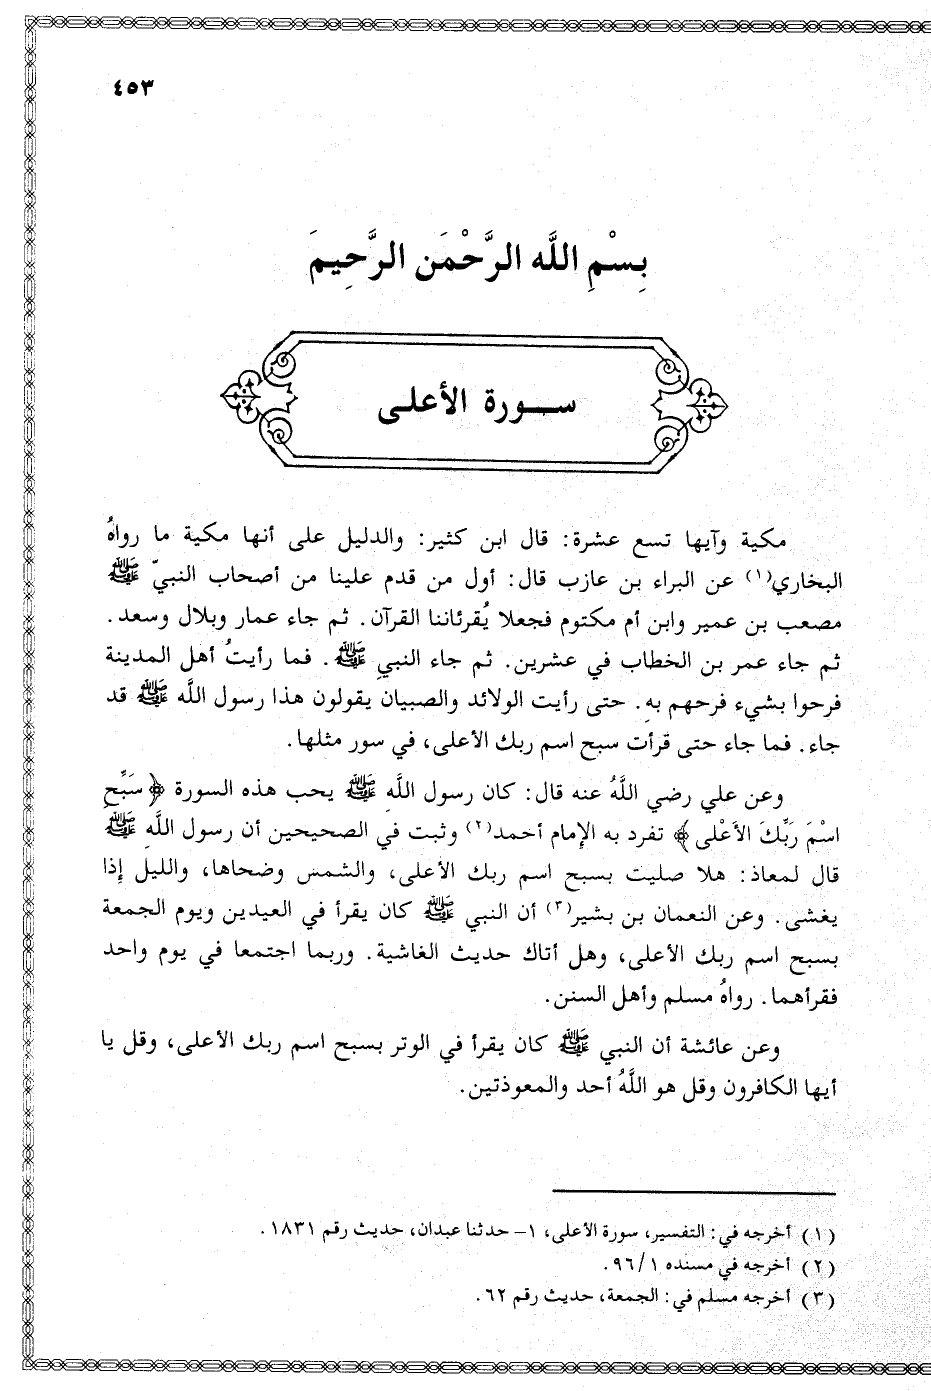 ٤٥٣
بِسْمِ اللَّه الرَّحْمَن الرَّحِيمَ
ســورة الأعلى
مكية وآيها تسع عشرة: قال ابن كثير: والدليل على أنها مكية ما رواهُ
البخاري(١) عن البراء بن عازب قال: أول من قدم علينا من أصحاب النبيّ ﷺ
مصعب بن عمير وابن أم مكتوم فجعلا يُقرئاننا القرآن. ثم جاء عمار وبلال وسعد.
ثم جاء عمر بن الخطاب في عشرين. ثم جاء النبيِ ﷺ. فما رأيتُ أهل المدينة
فرحوا بشيء فرحهم بهِ. حتى رأيت الولائد والصبيان يقولون هذا رسول اللَّه ﷺ قد
جاء. فما جاء حتى قرأت سبح اسم ربك الأعلى، في سور مثلها.
وعن علي رضي اللَّهُ عنه قال: كان رسول اللَّهِ ﷺ يحب هذه السورة ﴿سَبِّحِ
اسْمَ رَبِّكَ الأَعْلى﴾ تفرد به الإمام أحمد(٢) وثبت في الصحيحين أن رسول اللَّهِ ﷺ
قال لمعاذ: هلا صليت بسبح اسم ربك الأعلى، والشمس وضحاها، والليل إذا
يغشى. وعن النعمان بن بشير(٣) أن النبي ﷺ كان يقرأ في العيدين ويوم الجمعة
بسبح اسم ربك الأعلى، وهل أتاك حديث الغاشية. وربما اجتمعا في يوم واحد
فقرأهما. رواهُ مسلم وأهل السنن.
وعن عائشة أن النبي ﷺ كان يقرأ في الوتر بسبح اسم ربك الأعلى، وقل يا
أيها الكافرون وقل هو اللَّهُ أحد والمعوذتين.
(١) أخرجه في: التفسير، سورة الأعلى، ١- حدثنا عبدان، حديث رقم ١٨٣١.
(٢) أخرجه في مسنده ٩٦/١.
(٣) أخرجه مسلم في: الجمعة، حديث رقم ٦٢.